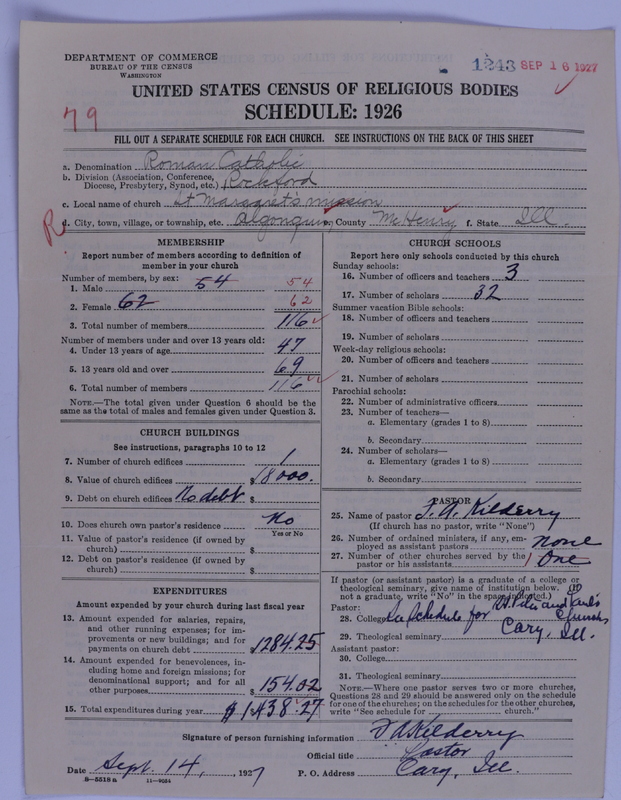 DEPARTMENT OF COMMERCE
BUREAU OF THE CENSUS
WASHINGTON
1243 SEP 16 1927
UNITED STATES CENSUS OF RELIGIOUS BODIES
SCHEDULE: 1926
79
FILL OUT A SEPARATE SCHEDULE FOR EACH CHURCH. SEE INSTRUCTIONS ON THE BACK OF THIS SHEET
a. Denomination Roman Catholic
b. Division (Association, Conference, Diocese, Presbytery, Synod, etc.) Rockford
c. Local name of church St Margaret's mission
R
d. City, town, village, or township, etc. Algonquin e. County McHenry f. State Ill.
MEMBERSHIP
Report number of members according to definition of
member in your church
Number of members, by sex:
1. Male 54 54
2. Female 62 62
3. Total number of members 116
Number of members under and over 13 years old:
4. Under 13 years of age 47
5. 13 years old and over 69
6. Total number of members 116
NOTE.—The total given under Question 6 should be the
same as the total of males and females given under Question 3.
CHURCH BUILDINGS
See instructions, paragraphs 10 to 12
7. Number of church edifices 1
8. Value of church edifices $18000.
9. Debt on church edifices No debt $
10. Does church own pastor's residence No
Yes or No
11. Value of pastor's residence (if owned by
church) $
12. Debt on pastor's residence (if owned by
church) $
EXPENDITURES
Amount expended by your church during last fiscal year
13. Amount expended for salaries, repairs,
and other running expenses; for im-
provements or new buildings; and for
payments on church debt $1284.25
14. Amount expended for benevolences, in-
cluding home and foreign missions; for
denominational support; and for all
other purposes $154.02
15. Total expenditures during year $1438.27
CHURCH SCHOOLS
Report here only schools conducted by this church
Sunday schools:
16. Number of officers and teachers 3
17. Number of scholars 32
Summer vacation Bible schools:
18. Number of officers and teachers
19. Number of scholars
Week-day religious schools:
20. Number of officers and teachers
21. Number of scholars
Parochial schools:
22. Number of administrative officers
23. Number of teachers—
a. Elementary (grades 1 to 8)
b. Secondary
24. Number of scholars—
a. Elementary (grades 1 to 8)
b. Secondary
PASTOR
25. Name of pastor F. A. Kilderry
(If church has no pastor, write "None")
26. Number of ordained ministers, if any, em-
ployed as assistant pastors none
27. Number of other churches served by the
pastor or his assistants 1 One
If pastor (or assistant pastor) is a graduate of a college or
theological seminary, give name of institution below. (If
not a graduate, write "No" in the space indicated.)
Pastor:
28. College See Schedule for SS. Peter and Paul's Church
Cary, Ill.
29. Theological seminary
Assistant pastor:
30. College
31. Theological seminary
NOTE.—Where one pastor serves two or more churches,
Questions 28 and 29 should be answered only on the schedule
for one of the churches; on the schedules for the other churches,
write "See schedule for church."
Signature of person furnishing information F A Kilderry
Official title Pastor
Date Sept. 14, 1927 P. O. Address Cary, Ill.
8-5518 a 11-9654